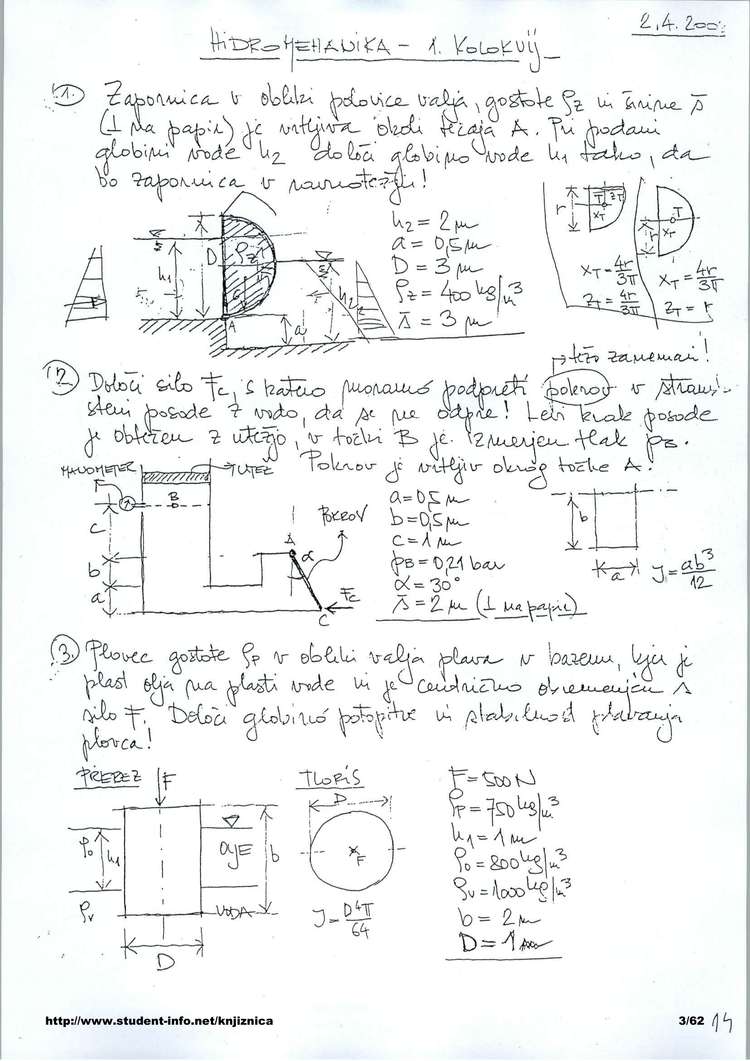 2.4.200
HIDROMEHANIKA - 1. KOLOKVIJ
1. Zapornica v obliki polovice valja, gostote ρz in širine š
(⊥ na papir) je vrtljiva okoli tečaja A. Pri podani
globini vode h2 določi globino vode h1 tako, da
bo zapornica v ravnotežju!
h2 = 2m
a = 0,5m
D = 3m
ρz = 400 kg/m³
š = 3m
D
ρz
h1
h2
A
a
r
T
zT
xT
xT = 4r/3π
zT = 4r/3π
r
T
xT
xT = 4r/3π
zT = r
→ težo zanemari!
2. Določi silo Fc, s katero moramo podpreti pokrov v stran-
steni posode z vodo, da se ne odpre! Levi krak posode
je obtežen z utežjo, v točki B je izmerjen tlak pB.
Pokrov je vrtljiv okrog točke A.
MANOMETER
UTEŽ
B
POKROV
A
α
Fc
C
c
b
a
a = 0,5m
b = 0,5m
c = 1m
pB = 0,21 bar
α = 30°
š = 2m (⊥ na papir)
b
a
J = ab³/12
3. Plovec gostote ρp v obliki valja plava v bazenu, kjer je
plast olja na plasti vode in je centrično obremenjen s
silo F. Določi globino potopitve in stabilnost plavanja
plovca!
PREREZ
F
ρo
h1
OLJE
b
ρv
VODA
D
TLORIS
D
F
J = D⁴π/64
F = 500N
ρp = 750 kg/m³
h1 = 1m
ρo = 800 kg/m³
ρv = 1000 kg/m³
b = 2m
D = 1m
http://www.student-info.net/knjiznica
3/62
14